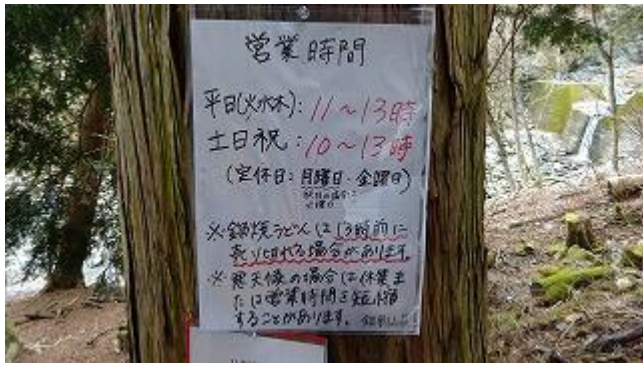 営業時間
平日(火水木): 11〜13時
土日祝: 10〜13時
(定休日: 月曜日・金曜日)
※鍋焼うどんは13時前に
売り切れる場合があります。
※悪天候の場合は休業ま
たは営業時間を短縮
することがあります。